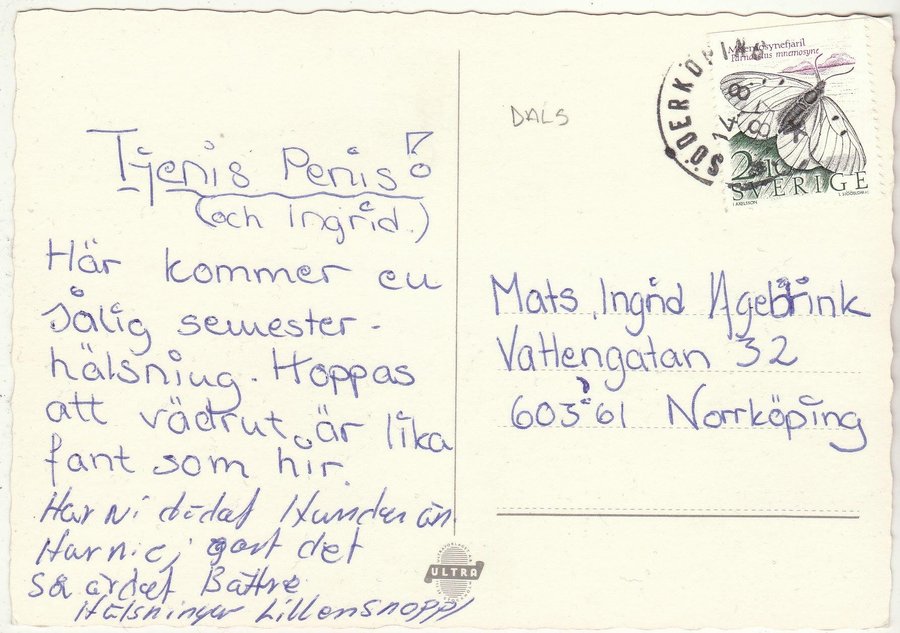 Tjenis Penis!
(och Ingrid.)
Här kommer en
sölig semester-
hälsning. Hoppas
att vädrut är lika
fant som hir.
Har Ni dödat Hunden än
Har ni ej gort det
så är det Bättre
Hälsninger Lillensnopp!
ULTRA
DALS
SÖDERKÖPING
14
Mnemosynefjäril
Parnassius mnemosyne
2.10
SVERIGE
Mats, Ingrid Agebrink
Vattengatan 32
603 61 Norrköping